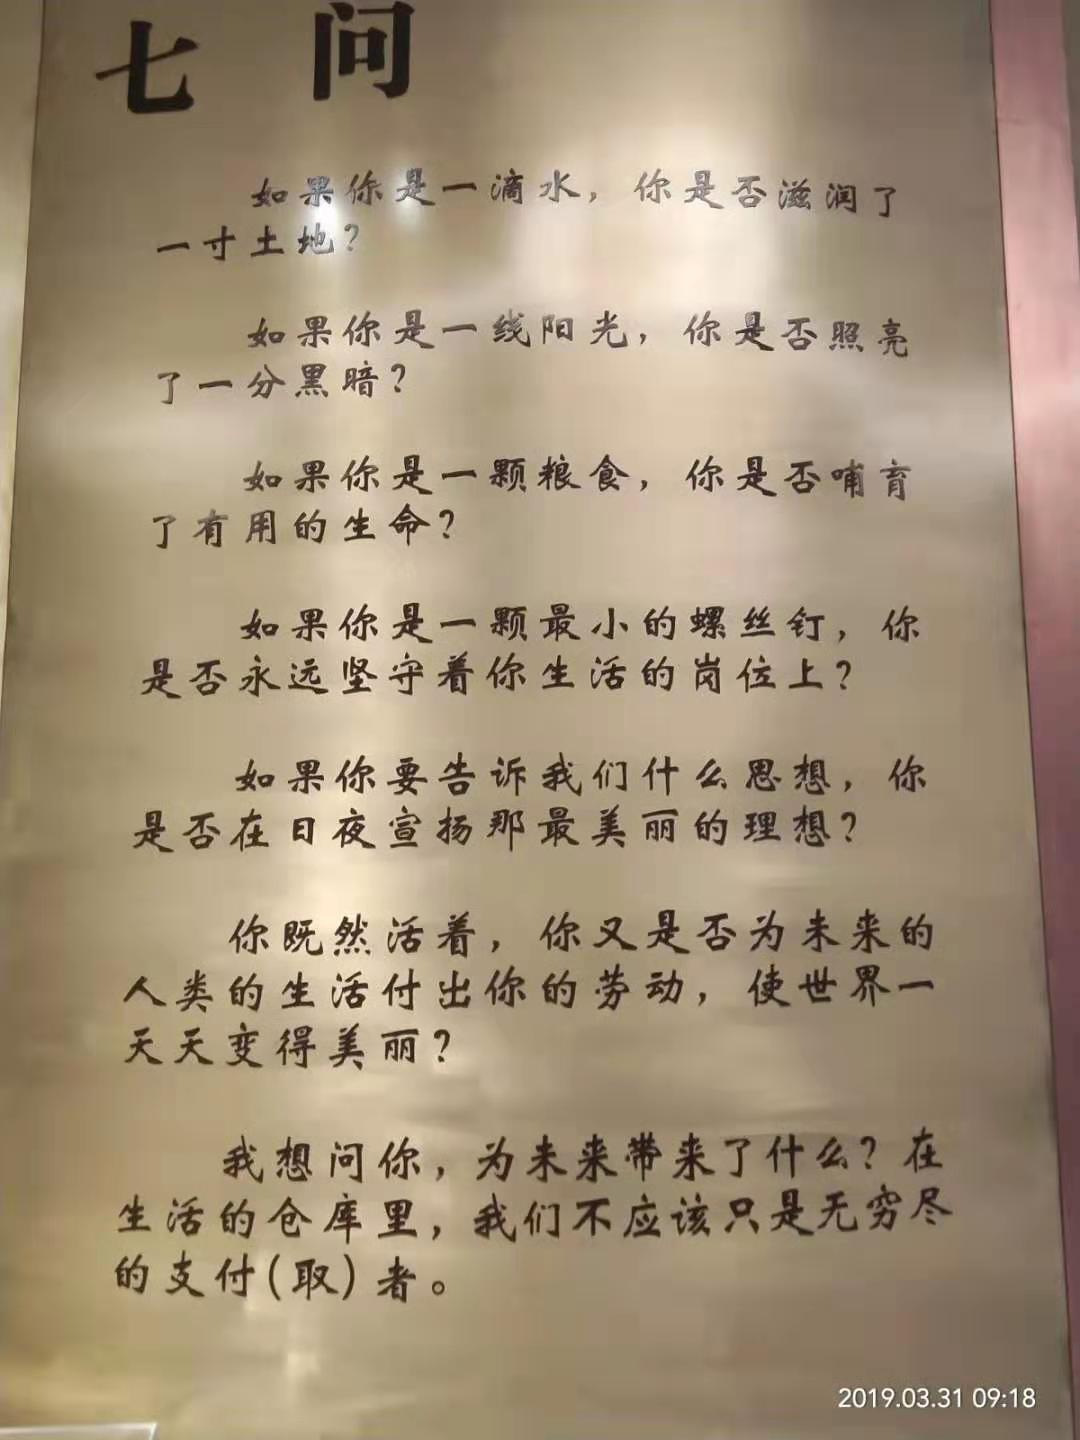 七问
如果你是一滴水，你是否滋润了
一寸土地？
如果你是一线阳光，你是否照亮
了一分黑暗？
如果你是一颗粮食，你是否哺育
了有用的生命？
如果你是一颗最小的螺丝钉，你
是否永远坚守着你生活的岗位上？
如果你要告诉我们什么思想，你
是否在日夜宣扬那最美丽的理想？
你既然活着，你又是否为未来的
人类的生活付出你的劳动，使世界一
天天变得美丽？
我想问你，为未来带来了什么？在
生活的仓库里，我们不应该只是无穷尽
的支付(取)者。
2019.03.31 09:18